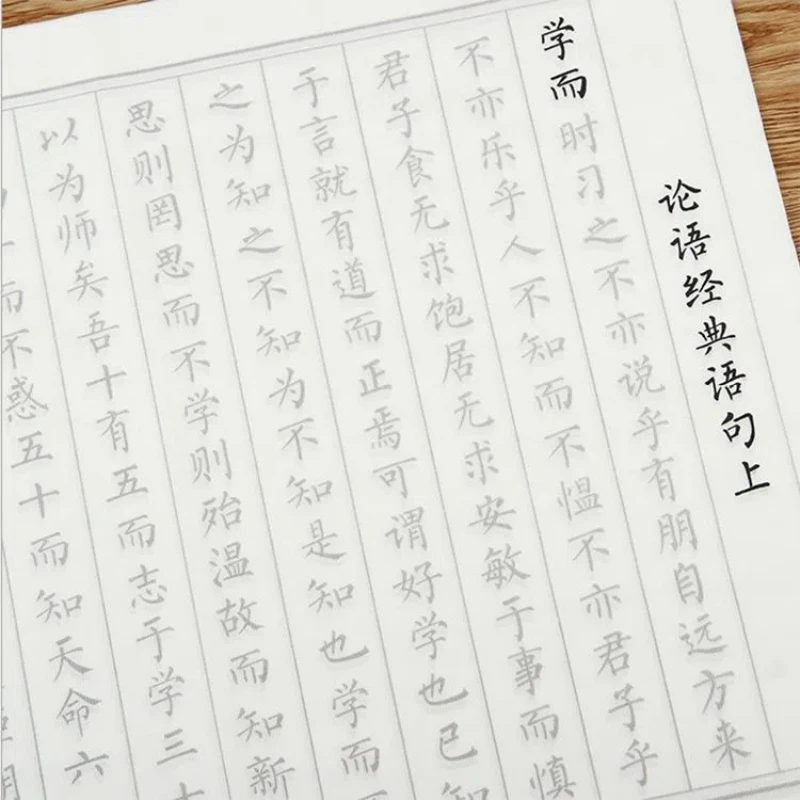 论语经典语句上
学而时习之不亦说乎有朋自远方来
不亦乐乎人不知而不愠不亦君子乎
君子食无求饱居无求安敏于事而慎
于言就有道而正焉可谓好学也已知
之为知之不知为不知是知也学而
思则罔思而不学则殆温故而知新
以为师矣吾十有五而志于学三十
而不惑五十而知天命六